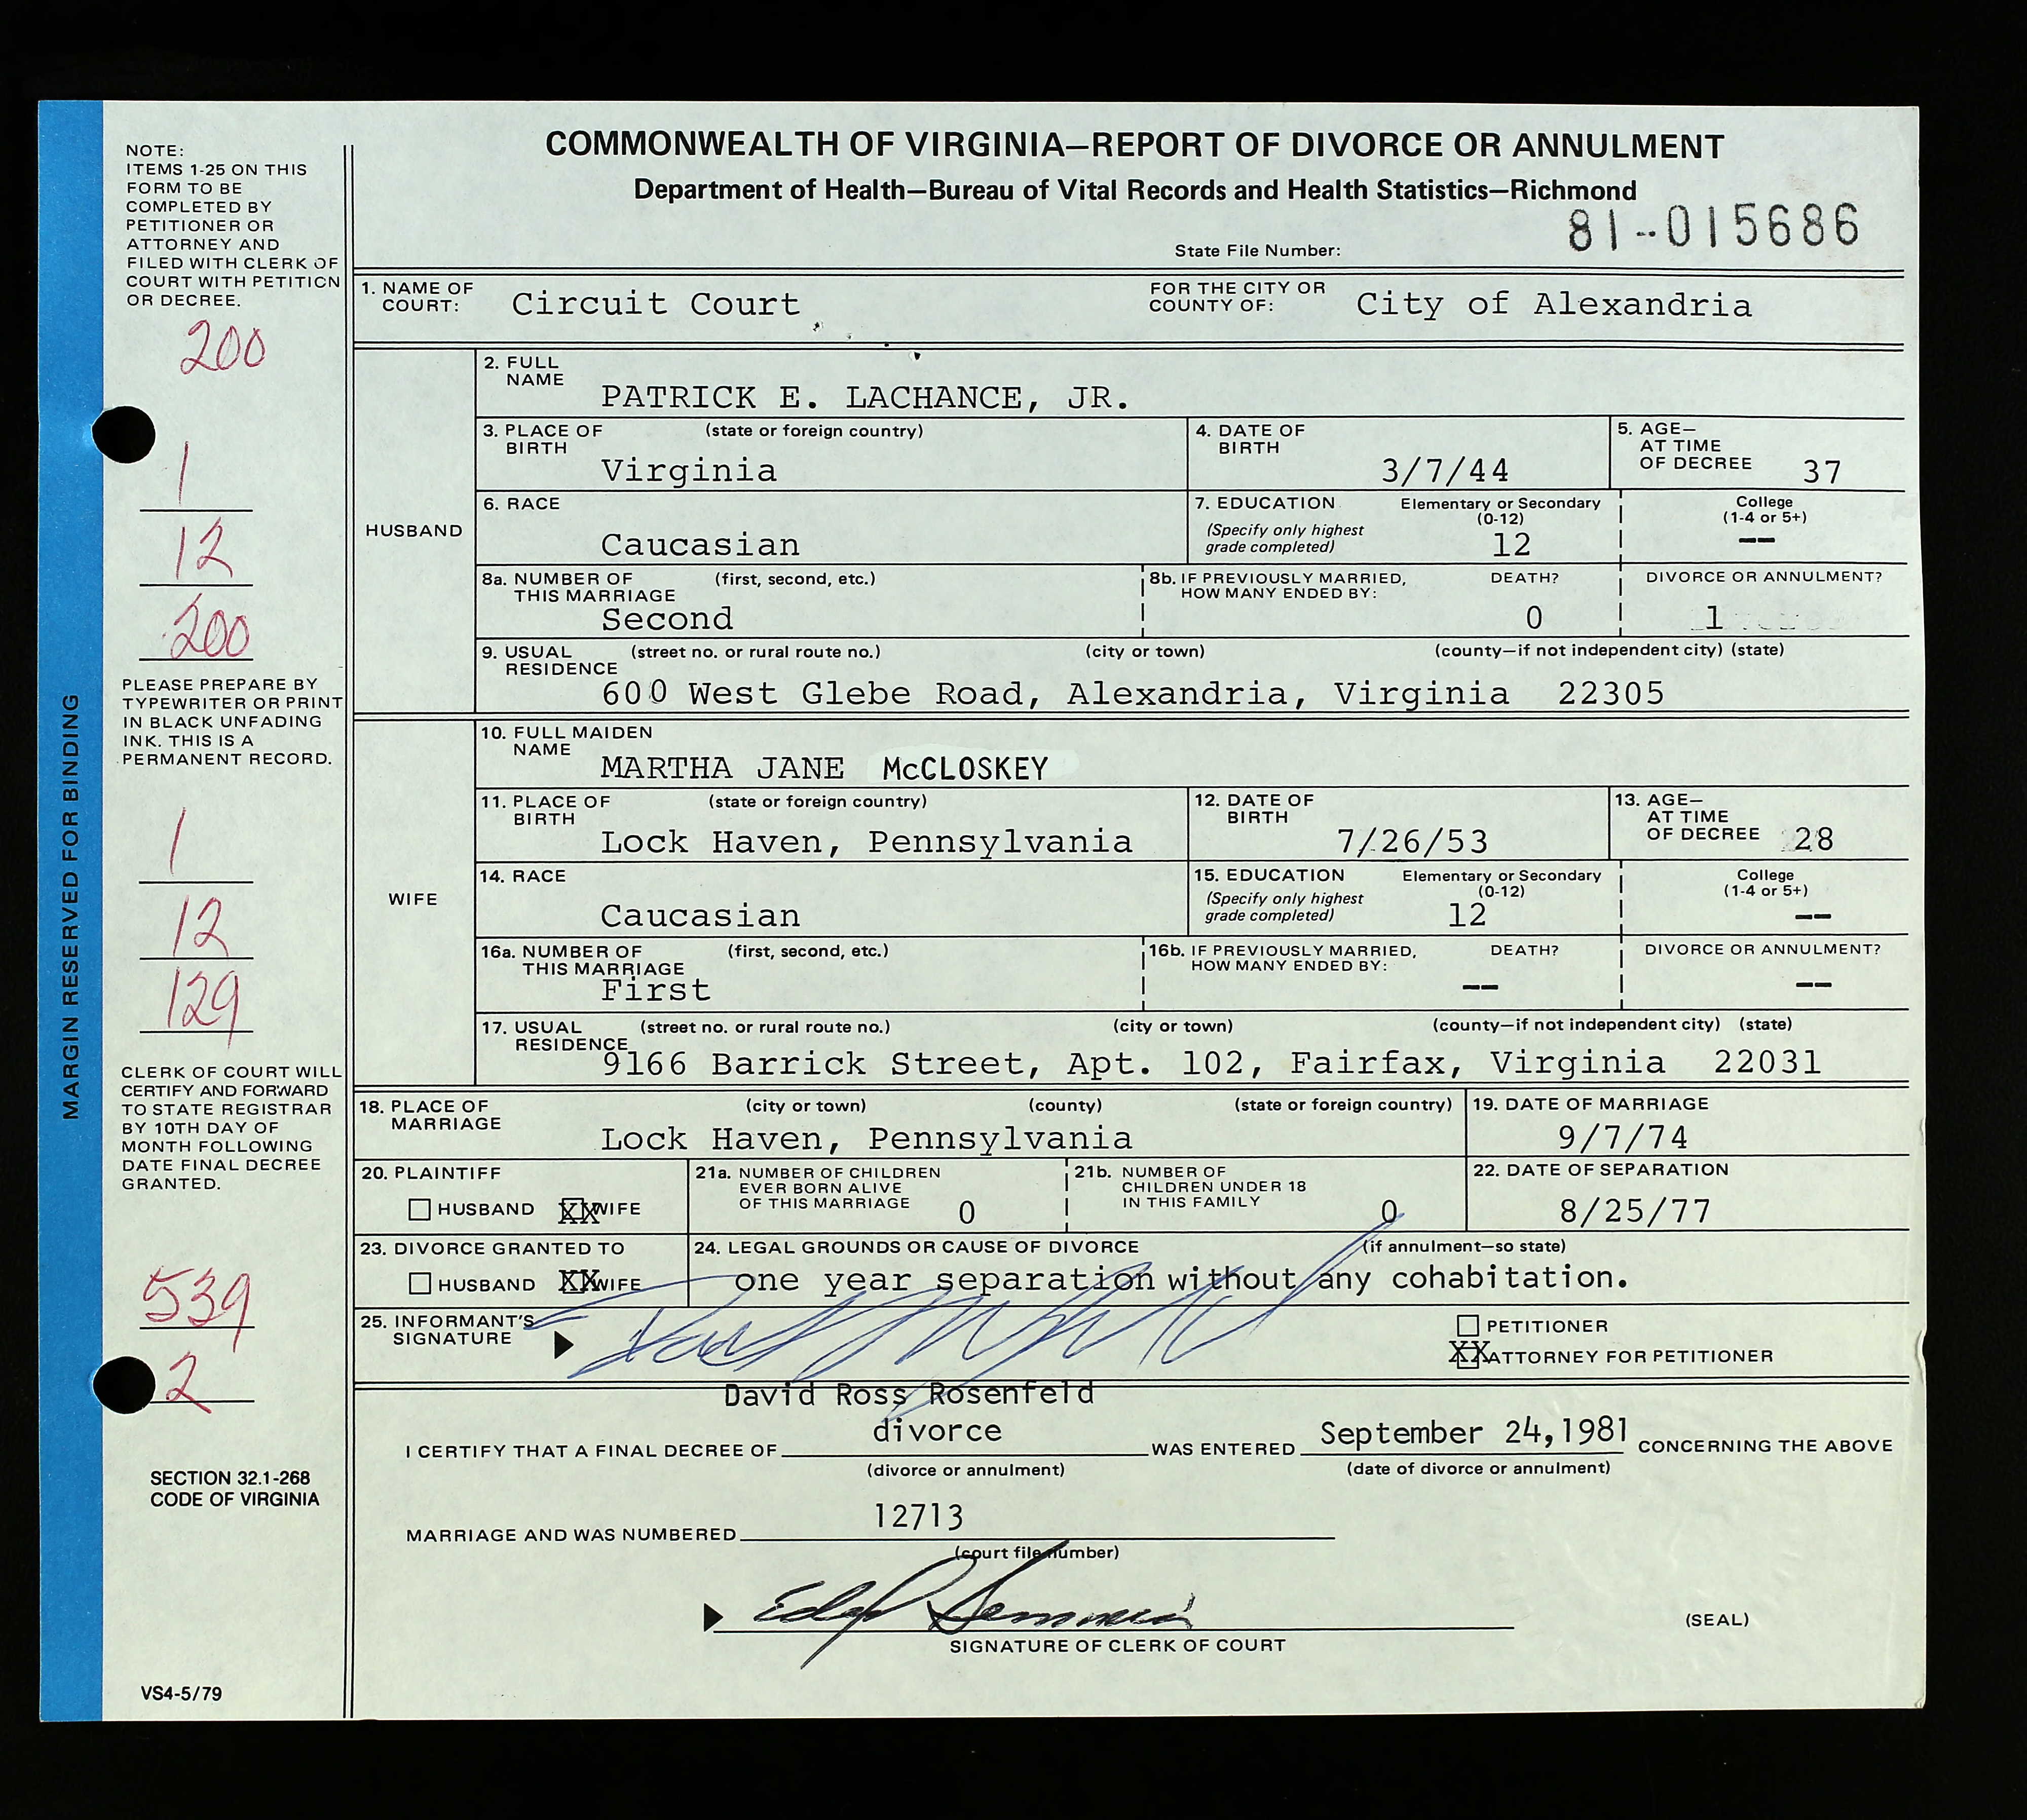 COMMONWEALTH OF VIRGINIA—REPORT OF DIVORCE OR ANNULMENT
Department of Health—Bureau of Vital Records and Health Statistics—Richmond
State File Number: 81--015686
NOTE:
ITEMS 1-25 ON THIS
FORM TO BE
COMPLETED BY
PETITIONER OR
ATTORNEY AND
FILED WITH CLERK OF
COURT WITH PETITION
OR DECREE.
200
1
12
200
PLEASE PREPARE BY
TYPEWRITER OR PRINT
IN BLACK UNFADING
INK. THIS IS A
PERMANENT RECORD.
1
12
129
CLERK OF COURT WILL
CERTIFY AND FORWARD
TO STATE REGISTRAR
BY 10TH DAY OF
MONTH FOLLOWING
DATE FINAL DECREE
GRANTED.
539
2
SECTION 32.1-268
CODE OF VIRGINIA
VS4-5/79
MARGIN RESERVED FOR BINDING
1. NAME OF COURT: Circuit Court FOR THE CITY OR COUNTY OF: City of Alexandria
HUSBAND
2. FULL NAME PATRICK E. LACHANCE, JR.
3. PLACE OF BIRTH (state or foreign country) Virginia
4. DATE OF BIRTH 3/7/44
5. AGE— AT TIME OF DECREE 37
6. RACE Caucasian
7. EDUCATION (Specify only highest grade completed) Elementary or Secondary (0-12) 12 College (1-4 or 5+) --
8a. NUMBER OF THIS MARRIAGE (first, second, etc.) Second
8b. IF PREVIOUSLY MARRIED, HOW MANY ENDED BY: DEATH? 0 DIVORCE OR ANNULMENT? 1
9. USUAL RESIDENCE (street no. or rural route no.) (city or town) (county—if not independent city) (state)
600 West Glebe Road, Alexandria, Virginia 22305
WIFE
10. FULL MAIDEN NAME MARTHA JANE McCLOSKEY
11. PLACE OF BIRTH (state or foreign country) Lock Haven, Pennsylvania
12. DATE OF BIRTH 7/26/53
13. AGE— AT TIME OF DECREE 28
14. RACE Caucasian
15. EDUCATION (Specify only highest grade completed) Elementary or Secondary (0-12) 12 College (1-4 or 5+) --
16a. NUMBER OF THIS MARRIAGE (first, second, etc.) First
16b. IF PREVIOUSLY MARRIED, HOW MANY ENDED BY: DEATH? -- DIVORCE OR ANNULMENT? --
17. USUAL RESIDENCE (street no. or rural route no.) (city or town) (county—if not independent city) (state)
9166 Barrick Street, Apt. 102, Fairfax, Virginia 22031
18. PLACE OF MARRIAGE (city or town) (county) (state or foreign country) Lock Haven, Pennsylvania
19. DATE OF MARRIAGE 9/7/74
20. PLAINTIFF HUSBAND XX WIFE
21a. NUMBER OF CHILDREN EVER BORN ALIVE OF THIS MARRIAGE 0
21b. NUMBER OF CHILDREN UNDER 18 IN THIS FAMILY 0
22. DATE OF SEPARATION 8/25/77
23. DIVORCE GRANTED TO HUSBAND XX WIFE
24. LEGAL GROUNDS OR CAUSE OF DIVORCE (if annulment—so state)
one year separation without any cohabitation.
25. INFORMANT'S SIGNATURE
PETITIONER
XX ATTORNEY FOR PETITIONER
David Ross Rosenfeld
I CERTIFY THAT A FINAL DECREE OF divorce WAS ENTERED September 24,1981 CONCERNING THE ABOVE
(divorce or annulment) (date of divorce or annulment)
MARRIAGE AND WAS NUMBERED 12713
(court file number)
SIGNATURE OF CLERK OF COURT
(SEAL)